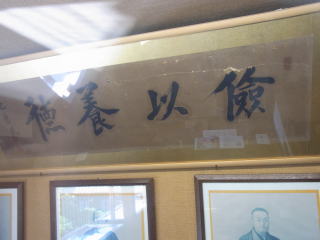 儉以養德